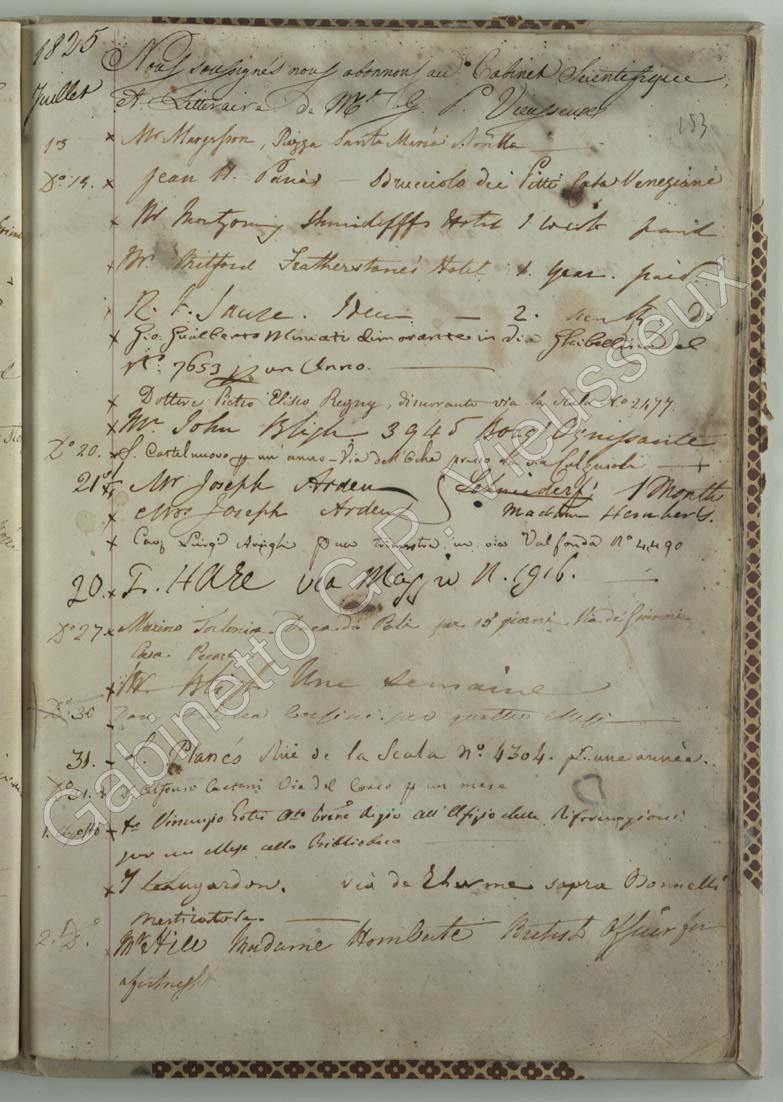 1825
Juillet
Nous soussignés nous abonnons au Cabinet Scientifique
et Litteraire de Mr G. P. Vieusseux
153
13 x Mr Margesson, Piazza Santa Maria Novella
Do 14. x Jean H. Sdrucciolo dei Pitti Casa Veneziani
x Mr Montgomery Schneiderffs Hotel 1 week paid
x Mr Mitford Featherstone's Hotel 1 year. paid.
R. F. Idem — 2. months do
x Gio. Gualberto Miniati dimorante in Via Ghibellina al
No. 7653 p un Anno.
x Dottore Pietro Eliseo Regny, dimorante via la Scala No 2477.
x Mr John Bligh 3945 Borg' Ognissante
Do 20. x S. Castelnuovo p un anno - Via dell'Oche presso la via Calzaioli
21 do x Mr Joseph Arden Schneiderf 1 Month
x Mrs Joseph Arden Madam Humberts.
x Cav. Luigi Arrighi p un trimestre in via Valfonda No 4490
20. x F. HARE via Maggio N. 1916.
Do 27 x Marino Torlonia Duca di Poli per 15 giorni Via de' Ginori
Casa Pecori
x Mr Bligh Une semaine
Do 30 Corsini per quattro Mesi
31. - Planés Rue de la Scala No. 4304. p. une année.
Do 31. x D. Alfonso Caetani Via del Cocco p un mese
1. Agosto Vincenzio all'Ufizio delle Riformagioni
per un Mese alla Biblioteca
x J Lelugardon. via de Therme sopra Bonnelli
Merticatore.
2. Do x Mr Hill Madame Hombert British Officer for
a fortnight
Gabinetto G.P. Vieusseux